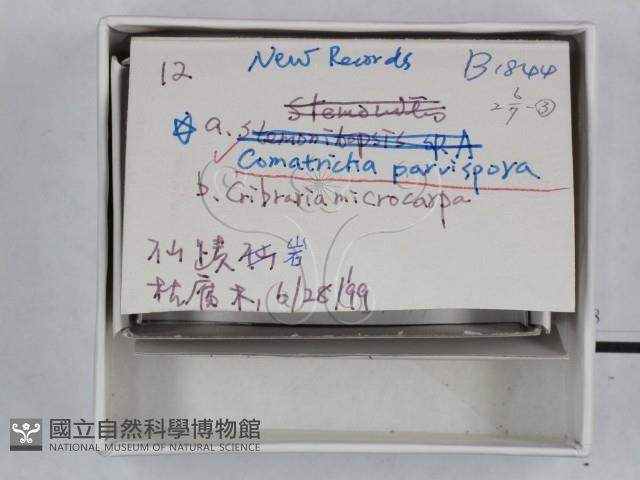 12 New Records B1844
2 6/7-③
Stemonitis
☆ a. Stemonitopsis sp. A
Comatricha parvispora
b. Cribraria microcarpa
仙蹟岩
枯腐木, 6/28/99
國立自然科學博物館
NATIONAL MUSEUM OF NATURAL SCIENCE